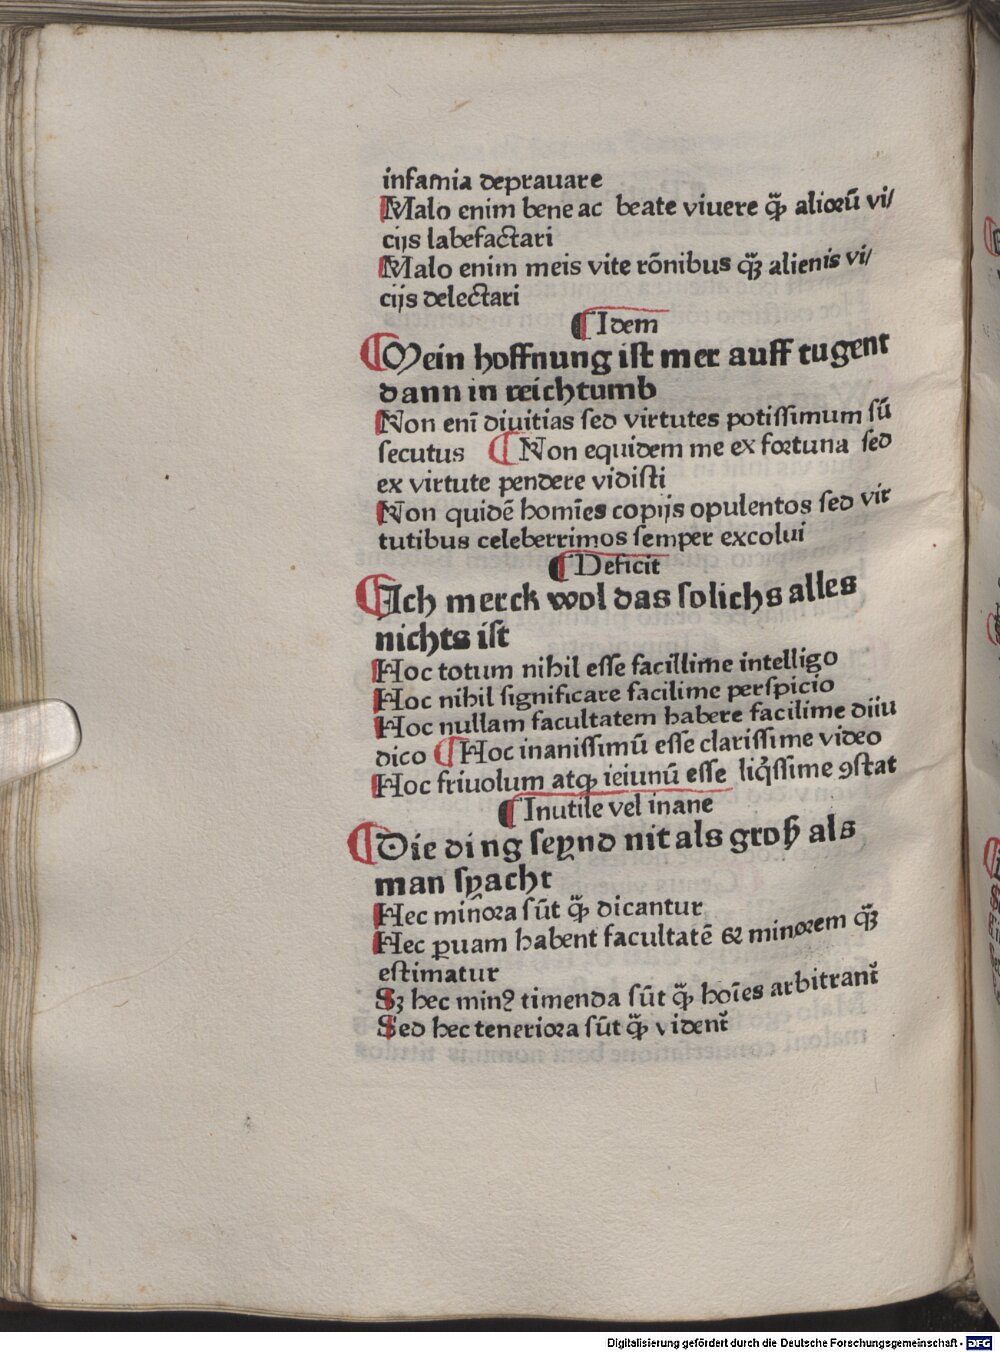 infamia deprauare
Malo enim bene ac beate viuere q̃ꝫ alioꝛū vi/
cijs labefactari
Malo enim meis vite rōnibus q̃ꝫ alienis vi/
cijs delectari
¶ Idem
¶ Mein hoffnung iſt mer auff tugent
dann in reichtumb
Non enī diuitias ſed virtutes potiſſimum ſū
ſecutus ¶ Non equidem me ex foꝛtuna ſed
ex virtute pendere vidiſti
Non quidē homīes copijs opulentos ſed vir
tutibus celeberrimos ſemper excolui
¶ Deficit
¶ Ich merck wol das ſolichs alles
nichts iſt
Hoc totum nihil eſſe facillime intelligo
Hoc nihil ſignificare facilime perſpicio
Hoc nullam facultatem habere facilime diiu
dico ¶ Hoc inaniſſimū eſſe clariſſime video
Hoc friuolum atqꝫ ieiunū eſſe liq̇ſſime ꝯſtat
¶ Inutile vel inane
¶ Die ding ſeynd nit als groß als
man ſpacht
Hec minoꝛa ſūt q̃ꝫ dicantur
Hec ꝑuam habent facultatē ⁊ minoꝛem q̃ꝫ
eſtimatur
Sꝫ hec minꝰ timenda ſūt q̃ꝫ hoīes arbitrant᷑
Sed hec tenerioꝛa ſūt q̃ꝫ vident᷑
Digitalisierung gefördert durch die Deutsche Forschungsgemeinschaft - DFG